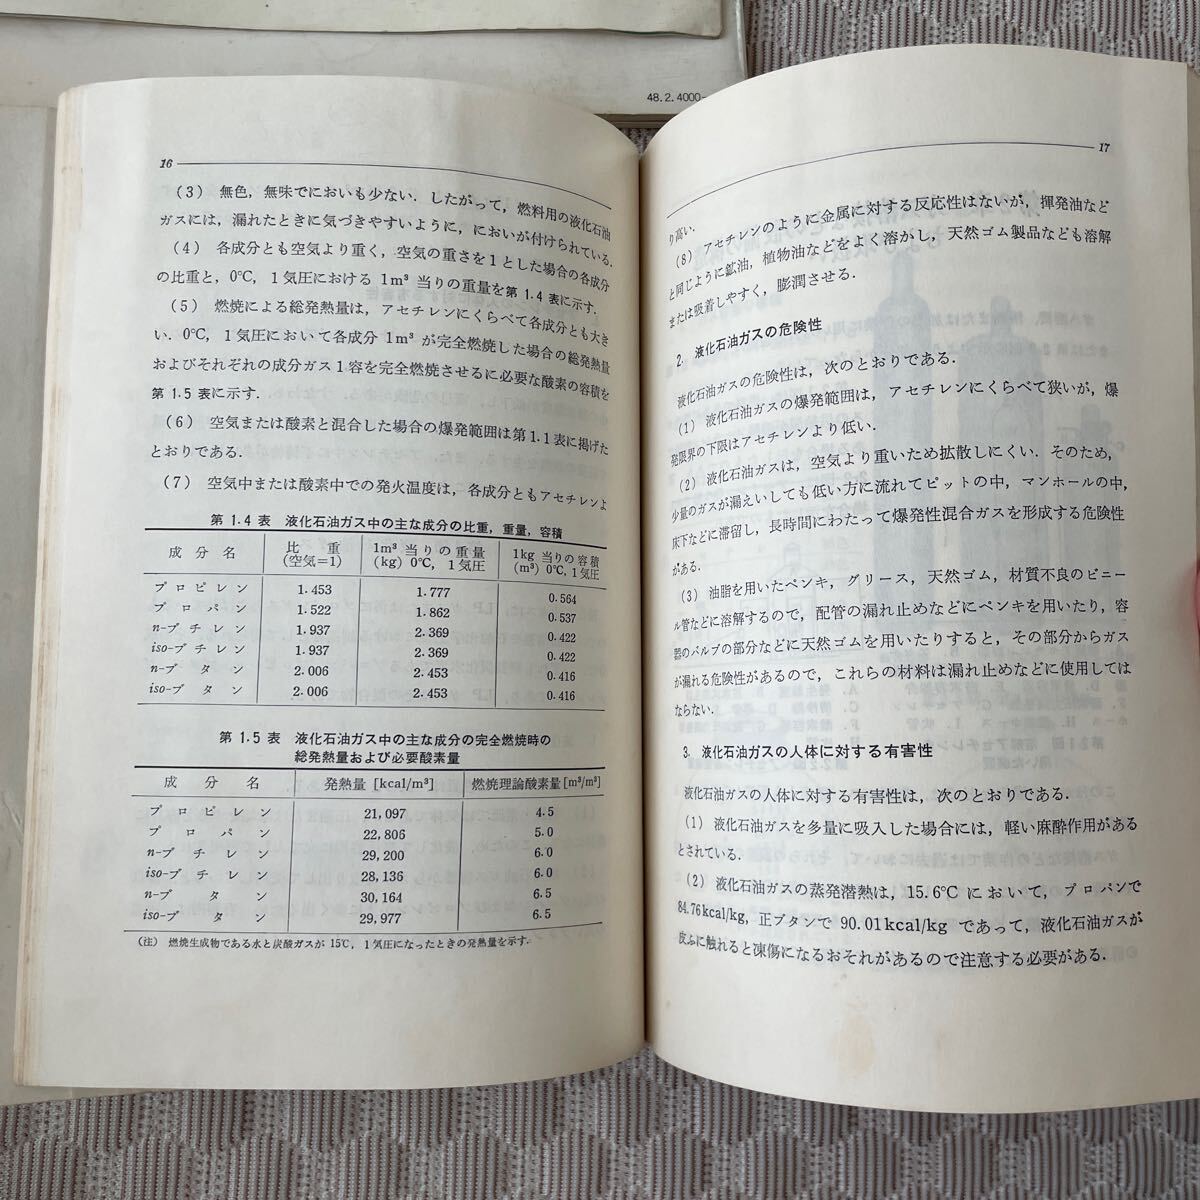 48.2.4000-
16
(3) 無色，無味でにおいも少ない．したがって，燃料用の液化石油
ガスには，漏れたときに気づきやすいように，においが付けられている．
(4) 各成分とも空気より重く，空気の重さを1とした場合の各成分
の比重と，0℃，1気圧における1m³当りの重量を第1.4表に示す．
(5) 燃焼による総発熱量は，アセチレンにくらべて各成分とも大き
い．0℃，1気圧において各成分1m³が完全燃焼した場合の総発熱量
およびそれぞれの成分ガス1容を完全燃焼させるに必要な酸素の容積を
第1.5表に示す．
(6) 空気または酸素と混合した場合の爆発範囲は第1.1表に掲げた
とおりである．
(7) 空気中または酸素中での発火温度は，各成分ともアセチレンよ
第1.4表 液化石油ガス中の主な成分の比重，重量，容積
成分名 比重 (空気=1) 1m³当りの重量 (kg) 0℃，1気圧 1kg当りの容積 (m³) 0℃，1気圧
プロピレン 1.453 1.777 0.564
プロパン 1.522 1.862 0.537
n-ブチレン 1.937 2.369 0.422
iso-ブチレン 1.937 2.369 0.422
n-ブタン 2.006 2.453 0.416
iso-ブタン 2.006 2.453 0.416
第1.5表 液化石油ガス中の主な成分の完全燃焼時の
総発熱量および必要酸素量
成分名 発熱量 [kcal/m³] 燃焼理論酸素量 [m³/m³]
プロピレン 21,097 4.5
プロパン 22,806 5.0
n-ブチレン 29,200 6.0
iso-ブチレン 28,136 6.0
n-ブタン 30,164 6.5
iso-ブタン 29,977 6.5
(注) 燃焼生成物である水と炭酸ガスが15℃，1気圧になったときの発熱量を示す．
17
り高い．
(8) アセチレンのように金属に対する反応性はないが，揮発油など
と同じように鉱油，植物油などをよく溶かし，天然ゴム製品なども溶解
または吸着しやすく，膨潤させる．
2. 液化石油ガスの危険性
液化石油ガスの危険性は，次のとおりである．
(1) 液化石油ガスの爆発範囲は，アセチレンにくらべて狭いが，爆
発限界の下限はアセチレンより低い．
(2) 液化石油ガスは，空気より重いため拡散しにくい．そのため，
少量のガスが漏えいしても低い方に流れてピットの中，マンホールの中，
床下などに滞留し，長時間にわたって爆発性混合ガスを形成する危険性
がある．
(3) 油脂を用いたペンキ，グリース，天然ゴム，材質不良のビニー
ル管などに溶解するので，配管の漏れ止めなどにペンキを用いたり，容
器のバルブの部分などに天然ゴムを用いたりすると，その部分からガス
が漏れる危険性があるので，これらの材料は漏れ止めなどに使用しては
ならない．
3. 液化石油ガスの人体に対する有害性
液化石油ガスの人体に対する有害性は，次のとおりである．
(1) 液化石油ガスを多量に吸入した場合には，軽い麻酔作用がある
とされている．
(2) 液化石油ガスの蒸発潜熱は，15.6℃において，プロパンで
84.76kcal/kg，正ブタンで90.01kcal/kgであって，液化石油ガスが
皮ふに触れると凍傷になるおそれがあるので注意する必要がある．